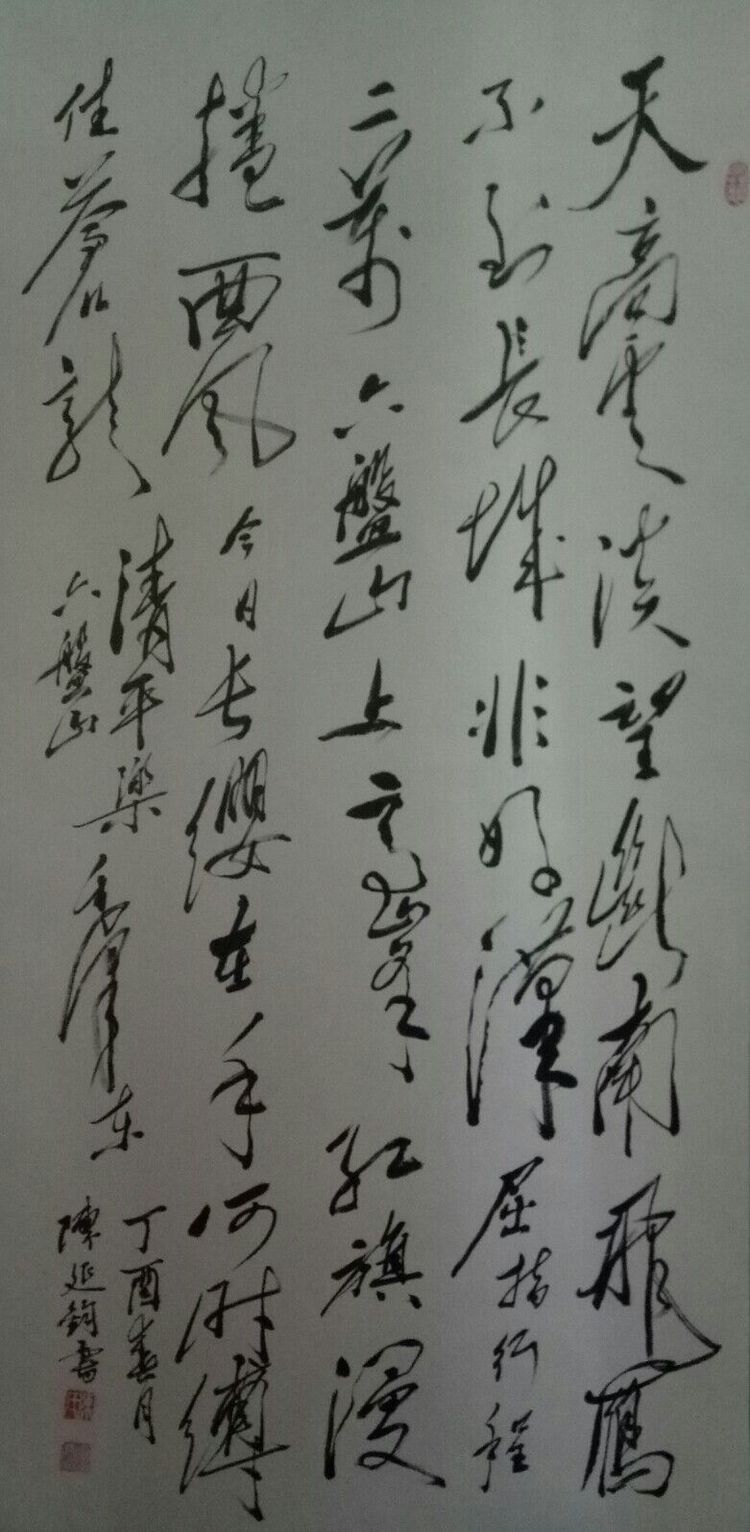 天高雲淡望斷南飛鴈
不到長城非好漢屈指行程
二萬六盤山上高峯紅旗漫
捲西風今日长纓在手何时縛
住蒼龍
清平樂
六盤山
毛澤东
丁酉春月
陳延鈞書